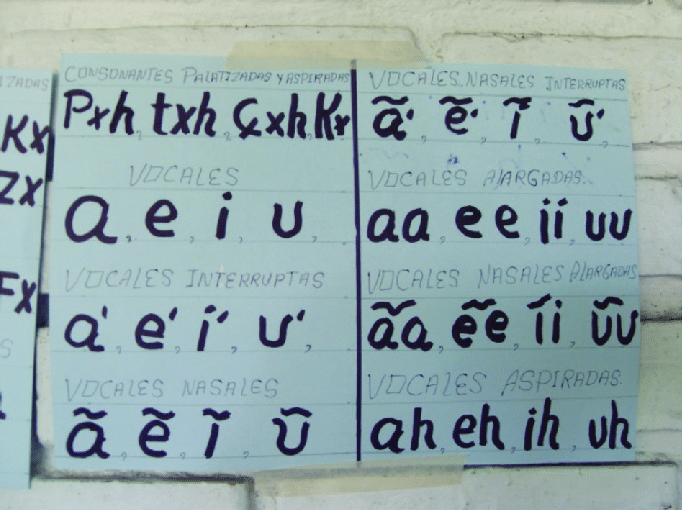 IZADAS
KX
ZX
FX
S
CONSONANTES PALATIZADAS Y ASPIRADAS
Pxh, txh, çxh, Kx
VOCALES
a, e, i, u,
VOCALES INTERRUPTAS
a', e', i', u',
VOCALES NASALES
ã, ẽ, ĩ, ũ
VOCALES NASALES INTERRUPTAS
ã', ẽ', ĩ', ũ',
VOCALES AlARGADAS.
aa, ee, ii, uu
VOCALES NASALES AlARGADAS
ãa, ẽe, ĩi, ũu
VOCALES ASPIRADAS.
ah, eh, ih, uh